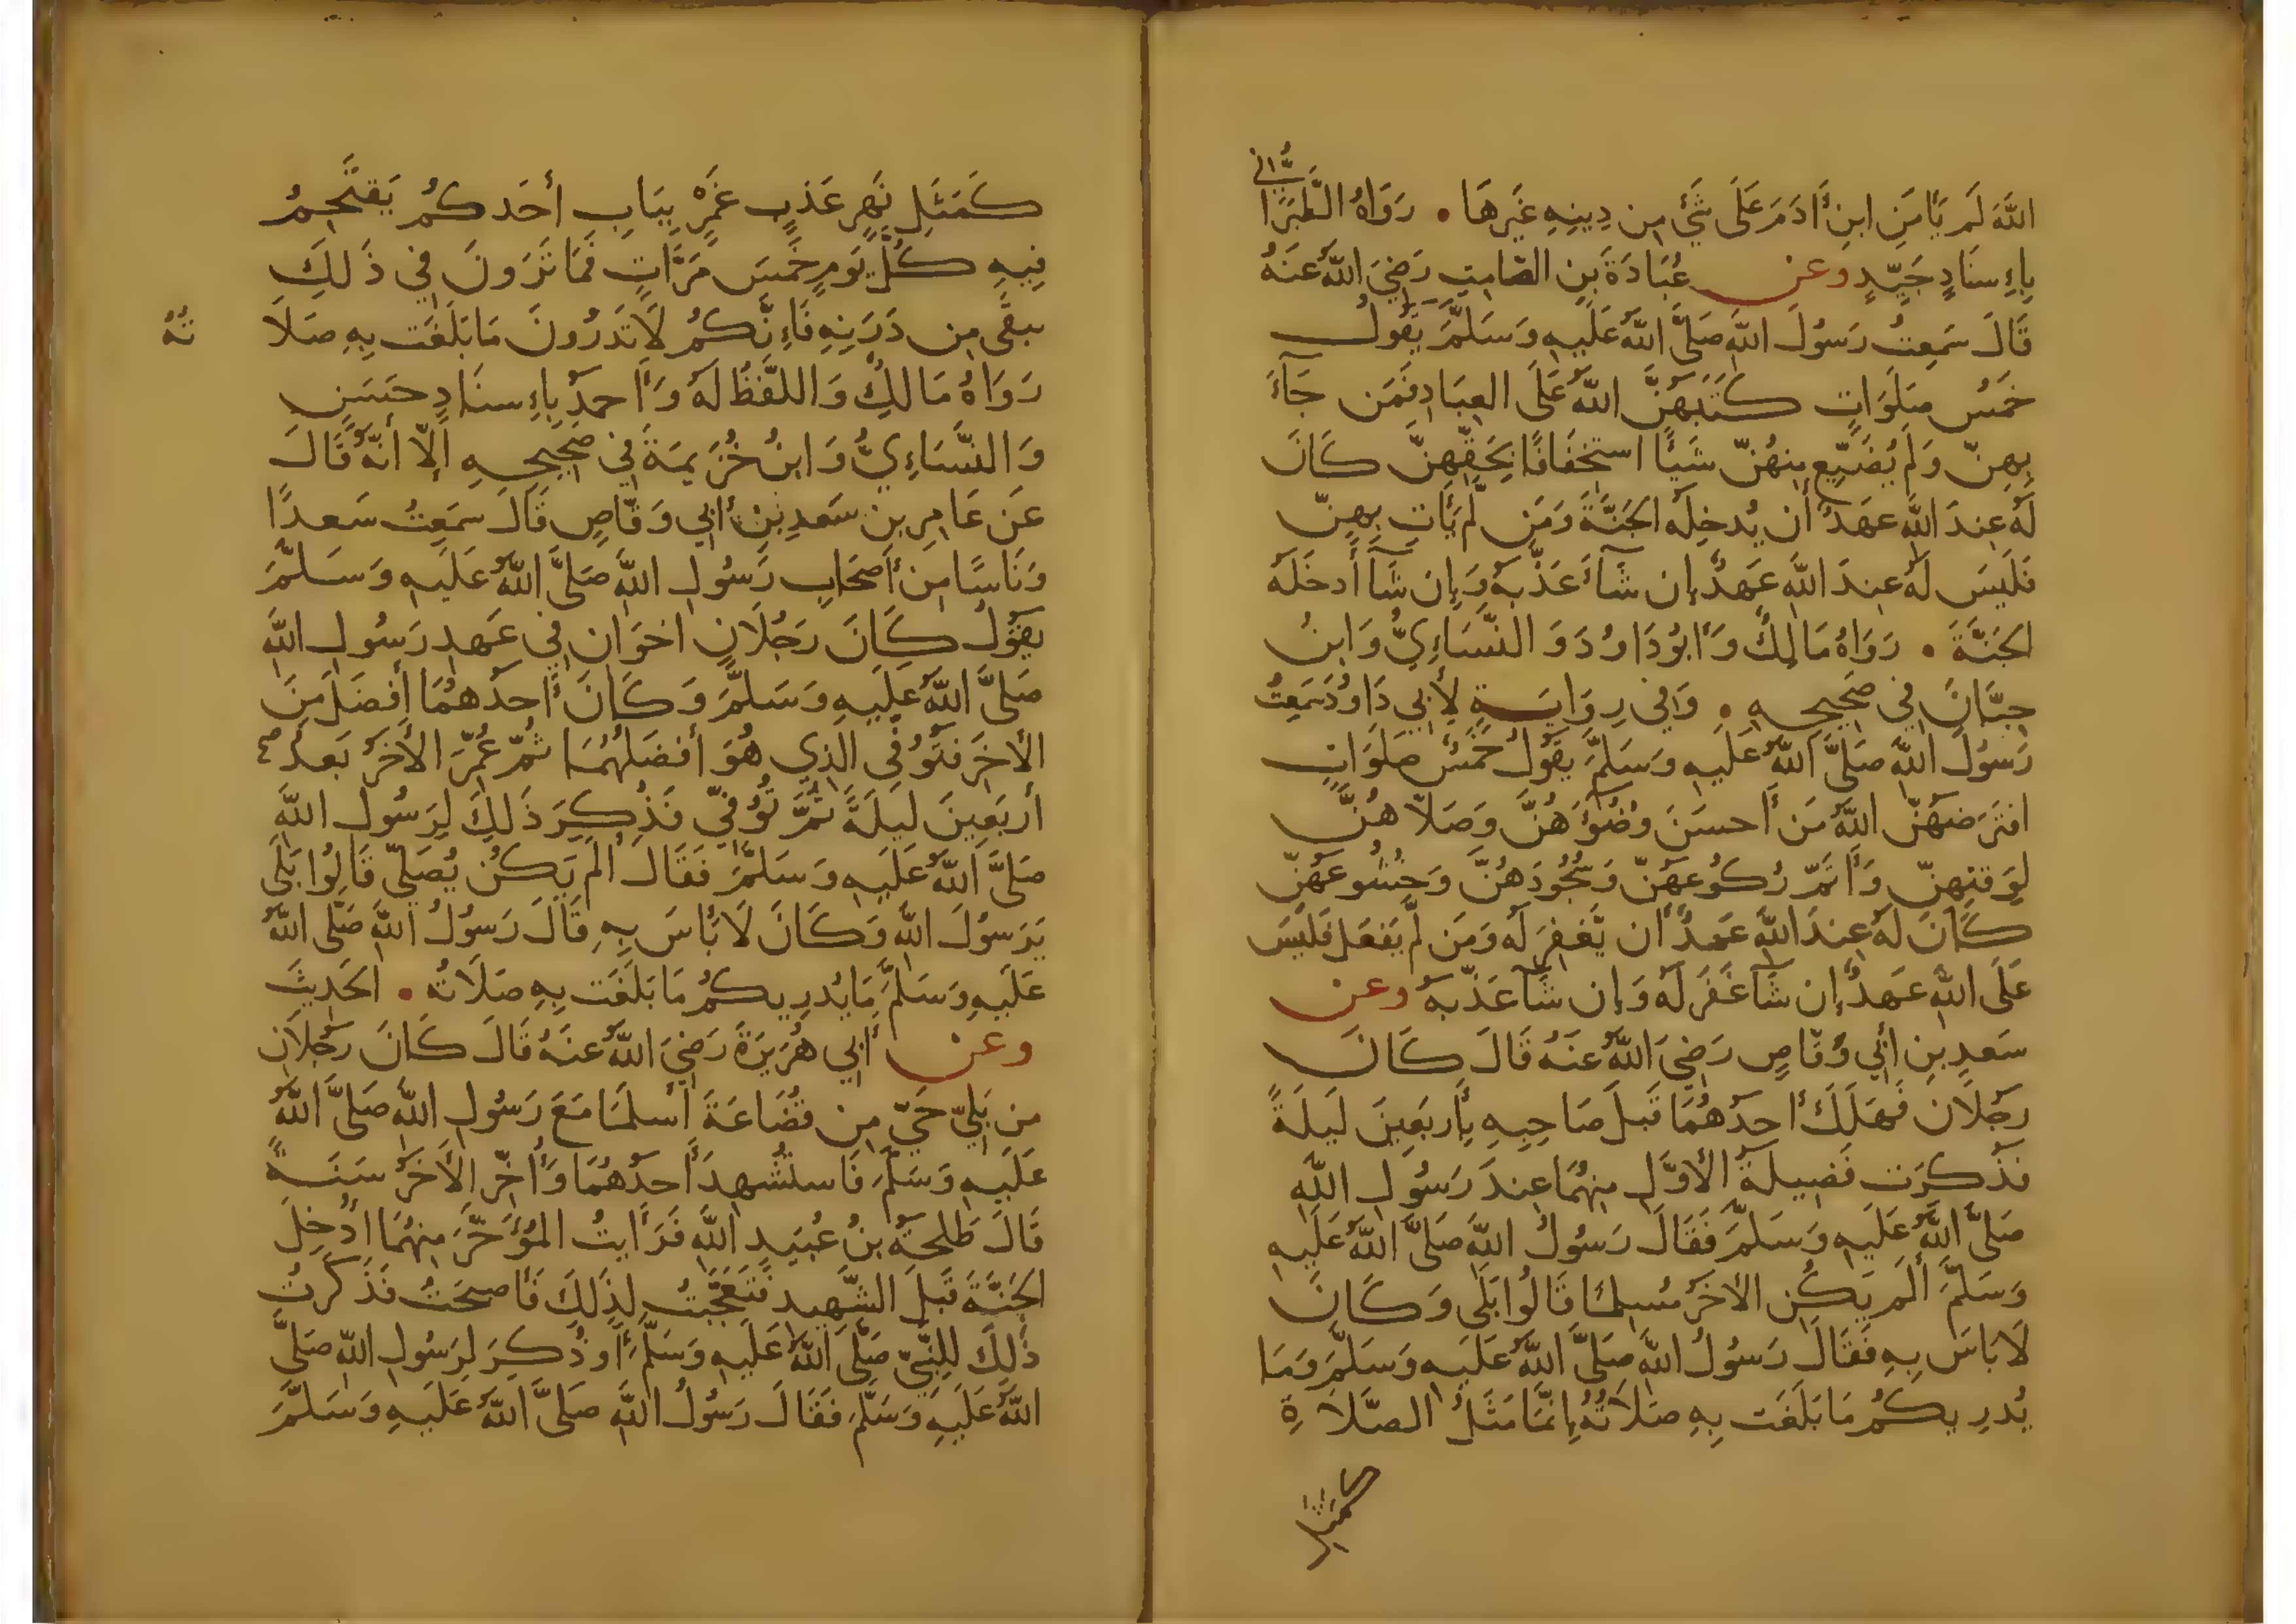 اللَّهَ لَم يَأمَنِ ابنَ أَادَمَ عَلَى شَيْءٍ مِن دِينِهِ غَيرِهَا . رَوَاهُ الطَّبَرَا
نِيُّ
بِإِسنَادٍ جَيِّدٍ وعن عُبَادَةَ بنِ الصَّامِتِ رَضِيَ اللَّهُ عَنهُ
قَالَ سَمِعتُ رَسُولَ اللَّهِ صَلَّى اللَّهُ عَلَيهِ وَسَلَّمَ يَقُولُ
خَمسُ صَلَوَاتٍ كَتَبَهُنَّ اللَّهُ عَلَى العِبَادِ فَمَن جَآءَ
بِهِنَّ وَلَم يُضَيِّع مِنهُنَّ شَيئًا استِخفَافًا بِحَقِّهِنَّ كَانَ
لَهُ عِندَ اللَّهِ عَهدٌ أَن يُدخِلَهُ الجَنَّةَ وَمَن لَّم يَأتِ بِهِنَّ
فَلَيسَ لَهُ عِندَ اللَّهِ عَهدٌ إِن شَآءَ عَذَّبَهُ وَإِن شَآأَدخَلَهُ
الجَنَّةَ . رَوَاهُ مَالِكٌ وَأَبُو دَاوُدَ وَالنَّسَاءِيُّ وَابنُ
حِبَّانَ فِي صَحِيحِهِ . وَفِي رِوَايَةٍ لِأَبِي دَاوُدَ سَمِعتُ
رَسُولَ اللَّهِ صَلَّى اللَّهُ عَلَيهِ وَسَلَّمَ يَقُولُ خَمسُ صَلَوَاتٍ
افتَرَضَهُنَّ اللَّهُ مَن أَحسَنَ وُضُؤَهُنَّ وَصَلَّا هُنَّ
لِوَقتِهِنَّ وَأَتَمَّ رُكُوعَهُنَّ وَسُجُودَهُنَّ وَخُشُوعَهُنَّ
كَانَ لَهُ عِندَ اللَّهِ عَهدٌ أَن يَّغفِرَ لَهُ وَمَن لَّم يَفعَل فَلَيسَ
عَلَى اللَّهِ عَهدٌ إِن شَآغَفَرَ لَهُ وَإِن شَآعَذَّبَهُ وعن
سَعدِ بنِ أَبِي وَقَّاصٍ رَضِيَ اللَّهُ عَنهُ قَالَ كَانَ
رَجُلَانِ فَهَلَكَ أَحَدُهُمَا قَبلَ صَاحِبِهِ بِأَربَعِينَ لَيلَةً
فَذُكِرَت فَضِيلَةُ الأَوَّلِ مِنهُمَا عِندَ رَسُولِ اللَّهِ
صَلَّى اللَّهُ عَلَيهِ وَسَلَّمَ فَقَالَ رَسُولُ اللَّهِ صَلَّى اللَّهُ عَلَيهِ
وَسَلَّمَ أَلَم يَكُنِ الأَخَرُ مُسلِمًا قَالُوا بَلَى وَكَانَ
لَا بَاسَ بِهِ فَقَالَ رَسُولُ اللَّهِ صَلَّى اللَّهُ عَلَيهِ وَسَلَّمَ وَمَا
يُدرِيكُم مَا بَلَغَت بِهِ صَلَاتُهُ إِنَّمَا مَثَلُ الصَّلَاةِ
كمثل
كَمَثَلِ نَهرٍ عَذبٍ غَمرٍ بِبَابِ أَحَدِكُم يَقتَحِمُ
فِيهِ كُلَّ يَومٍ خَمسَ مَرَّاتٍ فَمَا تَرَونَ فِي ذَلِكَ
يبقَى مِن دَرَنِهِ فَإِنَّكُم لَا تَدرُونَ مَا بَلَغَت بِهِ صَلَا
تُهُ
رَوَاهُ مَالِكٌ وَاللَّفظُ لَهُ وَأَحمَدُ بِإِسنَادٍ حَسَنٍ
وَالنَّسَاءِيُّ وَابنُ خُزَيمَةَ فِي صَحِيحِهِ إِلَّا أَنَّهُ قَالَ
عَن عَامِرِ بنِ سَعدِ بنِ أَبِي وَقَّاصٍ قَالَ سَمِعتُ سَعدًا
وَنَاسًا مِن أَصحَابِ رَسُولِ اللَّهِ صَلَّى اللَّهُ عَلَيهِ وَسَلَّمَ
يَقُولُ كَانَ رَجُلَانِ اخَوَانِ فِي عَهدِ رَسُولِ اللَّهِ
صَلَّى اللَّهُ عَلَيهِ وَسَلَّمَ وَكَانَ أَحَدُهُمَا أَفضَلَ مِنَ
الأَخَرِ فَتُوُفِّيَ الَّذِي هُوَ أَفضَلُهُمَا ثُمَّ عُمِّرَ الأَخَرُ بَعدَهُ
أَربَعِينَ لَيلَةً ثُمَّ تُوُفِّيَ فَذُكِرَ ذَلِكَ لِرَسُولِ اللَّهِ
صَلَّى اللَّهُ عَلَيهِ وَسَلَّمَ فَقَالَ أَلَم يَكُن يُصَلِّي قَالُوا بَلَى
يَرَسُولَ اللَّهِ وَكَانَ لَا بَأسَ بِهِ قَالَ رَسُولُ اللَّهِ صَلَّى اللَّهُ
عَلَيهِ وَسَلَّمَ مَا يُدرِيكُم مَا بَلَغَت بِهِ صَلَاتُهُ . الحَدِيثَ
وعن أَبِي هُرَيرَةَ رَضِيَ اللَّهُ عَنهُ قَالَ كَانَ رَجُلَانِ
مِن بَلِيٍّ حَيٍّ مِن قُضَاعَةَ أَسلَمَا مَعَ رَسُولِ اللَّهِ صَلَّى اللَّهُ
عَلَيهِ وَسَلَّمَ فَاستُشهِدَ أَحَدُهُمَا وَأُخِّرَ الأَخَرُ سَنَةً
قَالَ طَلحَةُ بنُ عُبَيدِ اللَّهِ فَرَأَيتُ المُؤَخَّرَ مِنهُمَا أُدخِلَ
الجَنَّةَ قَبلَ الشَّهِيدِ فَتَعَجَّبتُ لِذَلِكَ فَأَصبَحتُ فَذَكَرتُ
ذَلِكَ لِلنَّبِيِّ صَلَّى اللَّهُ عَلَيهِ وَسَلَّمَ أَو ذُكِرَ لِرَسُولِ اللَّهِ صَلَّى
اللَّهُ عَلَيهِ وَسَلَّمَ فَقَالَ رَسُولُ اللَّهِ صَلَّى اللَّهُ عَلَيهِ وَسَلَّمَ